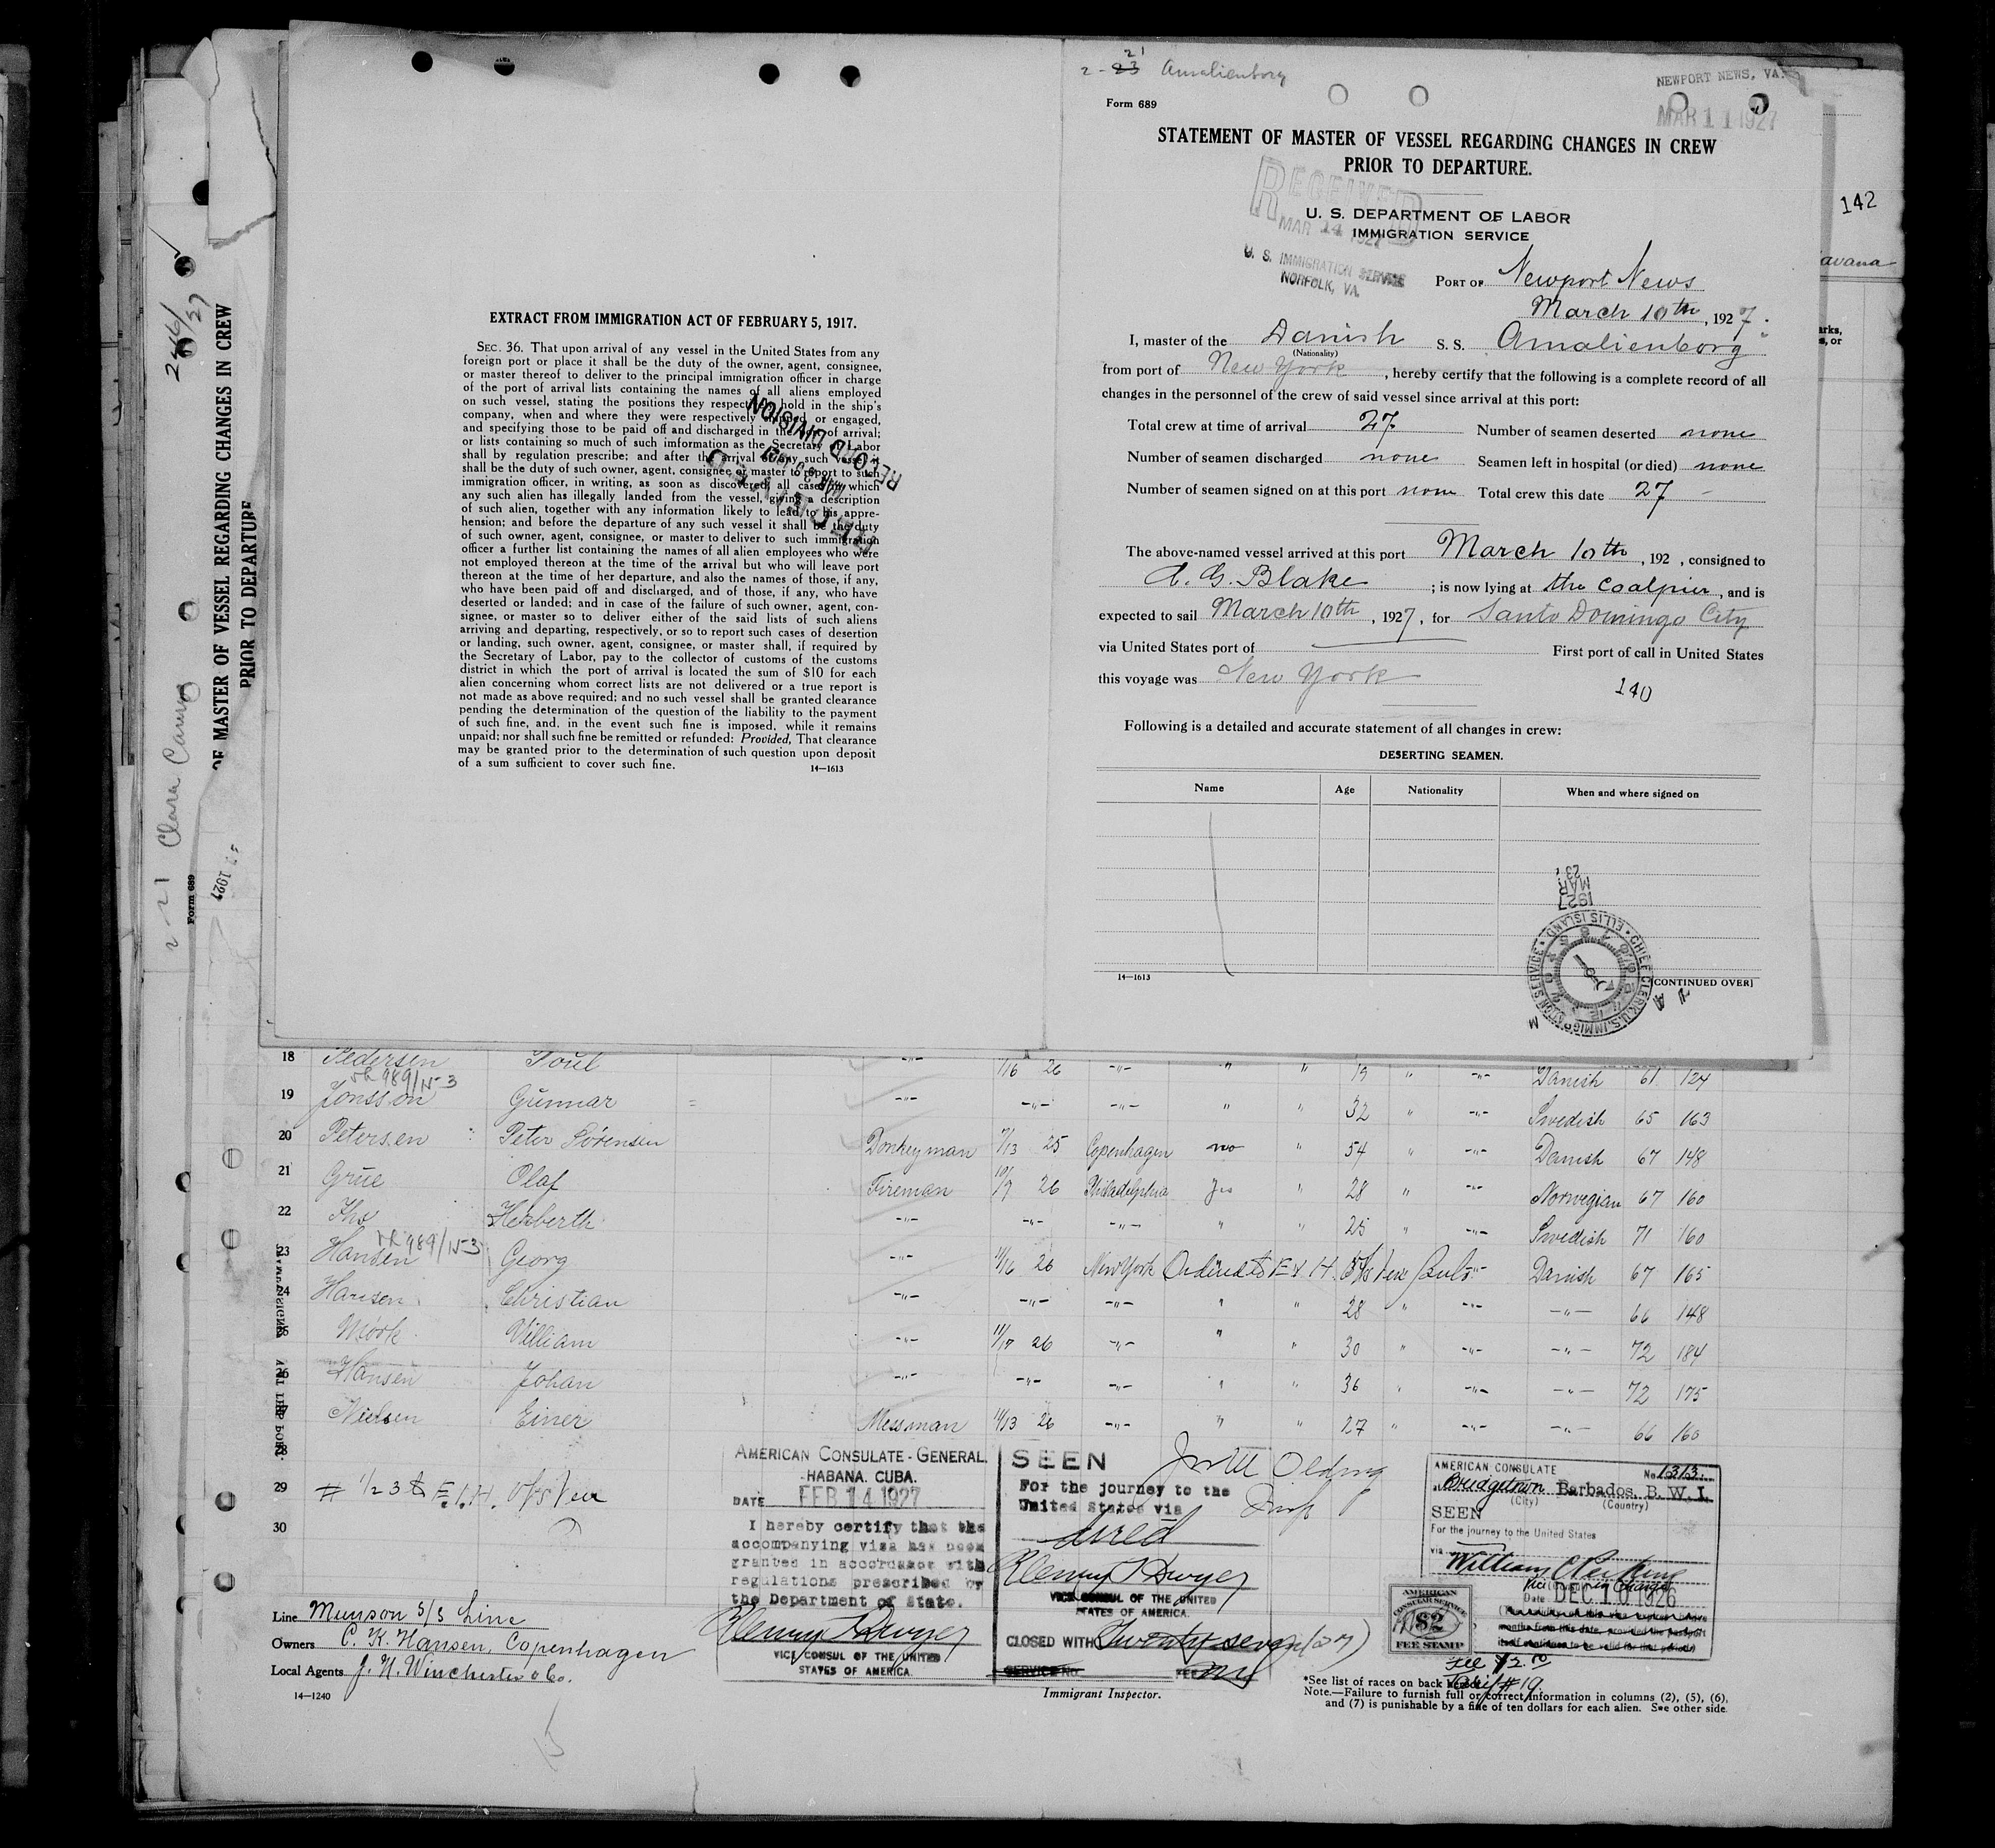 2-23 21 Amalienborg
Form 689
NEWPORT NEWS, VA.
MAR 11 1927
STATEMENT OF MASTER OF VESSEL REGARDING CHANGES IN CREW
PRIOR TO DEPARTURE.
RECEIVED
MAR 14 1927
U. S. IMMIGRATION SERVICE
NORFOLK, VA.
U. S. DEPARTMENT OF LABOR
IMMIGRATION SERVICE
PORT OF Newport News
March 10th, 1927.
I, master of the Danish S. S. Amalienborg
(Nationality)
from port of New York, hereby certify that the following is a complete record of all
changes in the personnel of the crew of said vessel since arrival at this port:
Total crew at time of arrival 27 Number of seamen deserted none
Number of seamen discharged none Seamen left in hospital (or died) none
Number of seamen signed on at this port none Total crew this date 27 -
The above-named vessel arrived at this port March 10th, 192 , consigned to
A. G. Blake; is now lying at the coalpier, and is
expected to sail March 10th, 1927, for Santo Domingo City
via United States port of First port of call in United States
this voyage was New York
140
Following is a detailed and accurate statement of all changes in crew:
DESERTING SEAMEN.
Name Age Nationality When and where signed on
1927
MAR
23
CHIEF CLERK U.S. IMMIGRATION SERVICE ELLIS ISLAND
14—1613
[CONTINUED OVER]
EXTRACT FROM IMMIGRATION ACT OF FEBRUARY 5, 1917.
SEC. 36. That upon arrival of any vessel in the United States from any
foreign port or place it shall be the duty of the owner, agent, consignee,
or master thereof to deliver to the principal immigration officer in charge
of the port of arrival lists containing the names of all aliens employed
on such vessel, stating the positions they respectively hold in the ship's
company, when and where they were respectively shipped or engaged,
and specifying those to be paid off and discharged in the port of arrival;
or lists containing so much of such imformation as the Secretary of Labor
shall by regulation prescribe; and after the arrival of any such vessel it
shall be the duty of such owner, agent, consignee or master to report to such
immigration officer, in writing, as soon as discovered, all cases in which
any such alien has illegally landed from the vessel, giving a description
of such alien, together with any information likely to lead to his appre-
hension; and before the departure of any such vessel it shall be the duty
of such owner, agent, consignee, or master to deliver to such immigration
officer a further list containing the names of all alien employees who were
not employed thereon at the time of the arrival but who will leave port
thereon at the time of her departure, and also the names of those, if any,
who have been paid off and discharged, and of those, if any, who have
deserted or landed; and in case of the failure of such owner, agent, con-
signee, or master so to deliver either of the said lists of such aliens
arriving and departing, respectively, or so to report such cases of desertion
or landing, such owner, agent, consignee, or master shall, if required by
the Secretary of Labor, pay to the collector of customs of the customs
district in which the port of arrival is located the sum of $10 for each
alien concerning whom correct lists are not delivered or a true report is
not made as above required; and no such vessel shall be granted clearance
pending the determination of the question of the liability to the payment
of such fine, and, in the event such fine is imposed, while it remains
unpaid; nor shall such fine be remitted or refunded: Provided, That clearance
may be granted prior to the determination of such question upon deposit
of a sum sufficient to cover such fine.
14—1613
RECORD DIVISION
OF MASTER OF VESSEL REGARDING CHANGES IN CREW
PRIOR TO DEPARTURE
2-21 Clara Camus
Form 689
1927
142
avana
18 Pedersen Poul -"- 1/16 26 -"- " " 19 " -"- Danish 61 124
19 Jonsson Gunnar -"- -"- -"- " " 32 " -"- Swedish 65 163
20 Petersen Peter Sörensen Donkeyman 7/13 25 Copenhagen no " 54 " -"- Danish 67 148
21 Grüe Olaf Fireman 10/7 26 Philadelphia Yes " 28 " -"- Norwegian 67 160
22 Ths Herberth -"- -"- -"- " " 25 " -"- Swedish 71 160
23 Hansen Georg -"- 11/16 26 New York Danish 67 165
24 Hansen Christian -"- -"- -"- " " 28 " -"- -"- 66 148
25 Mörk William -"- 11/17 26 -"- " " 30 " -"- -"- 72 184
26 Hansen Johan -"- -"- -"- " " 36 " -"- -"- 72 175
27 Nielsen Einer Messman 11/13 26 -"- " " 27 " -"- -"- 66 160
28
29
30
AMERICAN CONSULATE-GENERAL.
HABANA. CUBA.
DATE FEB 14 1927
I hereby certify that the
accompanying visa has been
granted in accordance with
regulations prescribed by
the Department of State.
VICE CONSUL OF THE UNITED
STATES OF AMERICA.
SEEN
For the journey to the
United States via
direct
VICE CONSUL OF THE UNITED
STATES OF AMERICA.
CLOSED WITH Twenty seven (27)
SERVICE NO. FEE
AMERICAN CONSULATE No. 1313.
at Bridgetown Barbados, B. W. I.
(City) (Country)
SEEN
For the journey to the United States
via
Date DEC 10 1926
AMERICAN
CONSULAR SERVICE
$2
FEE STAMP
Line Munson S/S Line
Owners C. K. Hansen, Copenhagen
Local Agents J. H. Winchester & Co.
14—1240
Immigrant Inspector.
*See list of races on back
Note.—Failure to furnish full or correct information in columns (2), (5), (6),
and (7) is punishable by a fine of ten dollars for each alien. See other side.